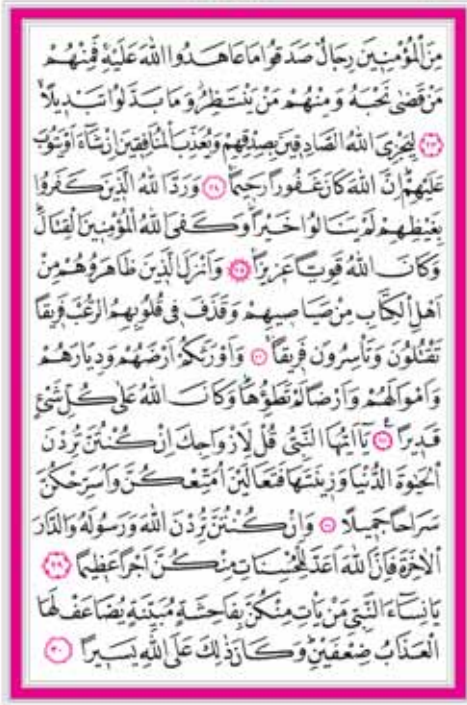 مِنَ الْمُؤْمِنِينَ رِجَالٌ صَدَقُوا مَا عَاهَدُوا اللّٰهَ عَلَيْهِۚ فَمِنْهُمْ
مَنْ قَضٰى نَحْبَهُ وَمِنْهُمْ مَنْ يَنْتَظِرُۘ وَمَا بَدَّلُوا تَبْدِيلًاۙ
﴿٢٣﴾ لِيَجْزِيَ اللّٰهُ الصَّادِقِينَ بِصِدْقِهِمْ وَيُعَذِّبَ الْمُنَافِقِينَ اِنْ شَٓاءَ اَوْ يَتُوبَ
عَلَيْهِمْۜ اِنَّ اللّٰهَ كَانَ غَفُورًا رَحِيمًاۚ ﴿٢٤﴾ وَرَدَّ اللّٰهُ الَّذِينَ كَفَرُوا
بِغَيْظِهِمْ لَمْ يَنَالُوا خَيْرًاۜ وَكَفَى اللّٰهُ الْمُؤْمِنِينَ الْقِتَالَۜ
وَكَانَ اللّٰهُ قَوِيًّا عَزِيزًاۚ ﴿٢٥﴾ وَاَنْزَلَ الَّذِينَ ظَاهَرُوهُمْ مِنْ
اَهْلِ الْكِتَابِ مِنْ صَيَاصِيهِمْ وَقَذَفَ فِي قُلُوبِهِمُ الرُّعْبَ فَرِيقًا
تَقْتُلُونَ وَتَأْسِرُونَ فَرِيقًاۚ ﴿٢٦﴾ وَاَوْرَثَكُمْ اَرْضَهُمْ وَدِيَارَهُمْ
وَاَمْوَالَهُمْ وَاَرْضًا لَمْ تَطَؤُ۫هَاۜ وَكَانَ اللّٰهُ عَلٰى كُلِّ شَيْءٍ
قَدِيرًا۟ ﴿٢٧﴾ يَٓا اَيُّهَا النَّبِيُّ قُلْ لِاَزْوَاجِكَ اِنْ كُنْتُنَّ تُرِدْنَ
الْحَيٰوةَ الدُّنْيَا وَزِينَتَهَا فَتَعَالَيْنَ اُمَتِّعْكُنَّ وَاُسَرِّحْكُنَّ
سَرَاحًا جَمِيلًا ﴿٢٨﴾ وَاِنْ كُنْتُنَّ تُرِدْنَ اللّٰهَ وَرَسُولَهُ وَالدَّارَ
الْاٰخِرَةَ فَاِنَّ اللّٰهَ اَعَدَّ لِلْمُحْسِنَاتِ مِنْكُنَّ اَجْرًا عَظِيمًا ﴿٢٩﴾
يَا نِسَٓاءَ النَّبِيِّ مَنْ يَأْتِ مِنْكُنَّ بِفَاحِشَةٍ مُبَيِّنَةٍ يُضَاعَفْ لَهَا
الْعَذَابُ ضِعْفَيْنِۜ وَكَانَ ذٰلِكَ عَلَى اللّٰهِ يَسِيرًا ﴿٣٠﴾